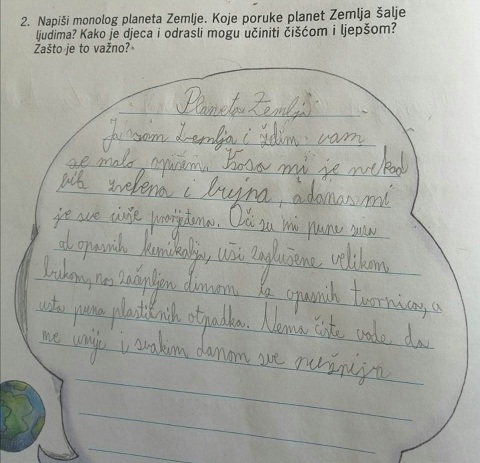 2. Napiši monolog planeta Zemlje. Koje poruke planet Zemlja šalje
ljudima? Kako je djeca i odrasli mogu učiniti čišćom i ljepšom?
Zašto je to važno?
Planeta Zemlja
Ja sam Zemlja i želim vam
se malo opisati. Kosa mi je nekad
bila zelena i bujna, a danas mi
je sve više prorijeđena. Oči su mi pune suza
od opasnih kemikalija, uši zaglušene velikom
bukom, nos začepljen dimom iz opasnih tvornica, a
usta puna plastičnih otpadka. Nema čiste vode da
me umije i svakim danom sve